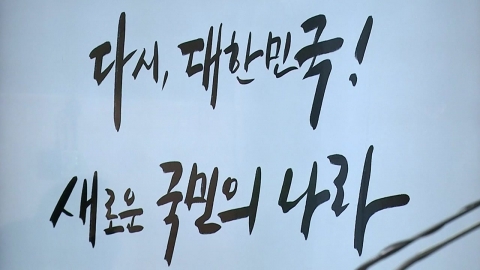 다시, 대한민국!
새로운 국민의 나라